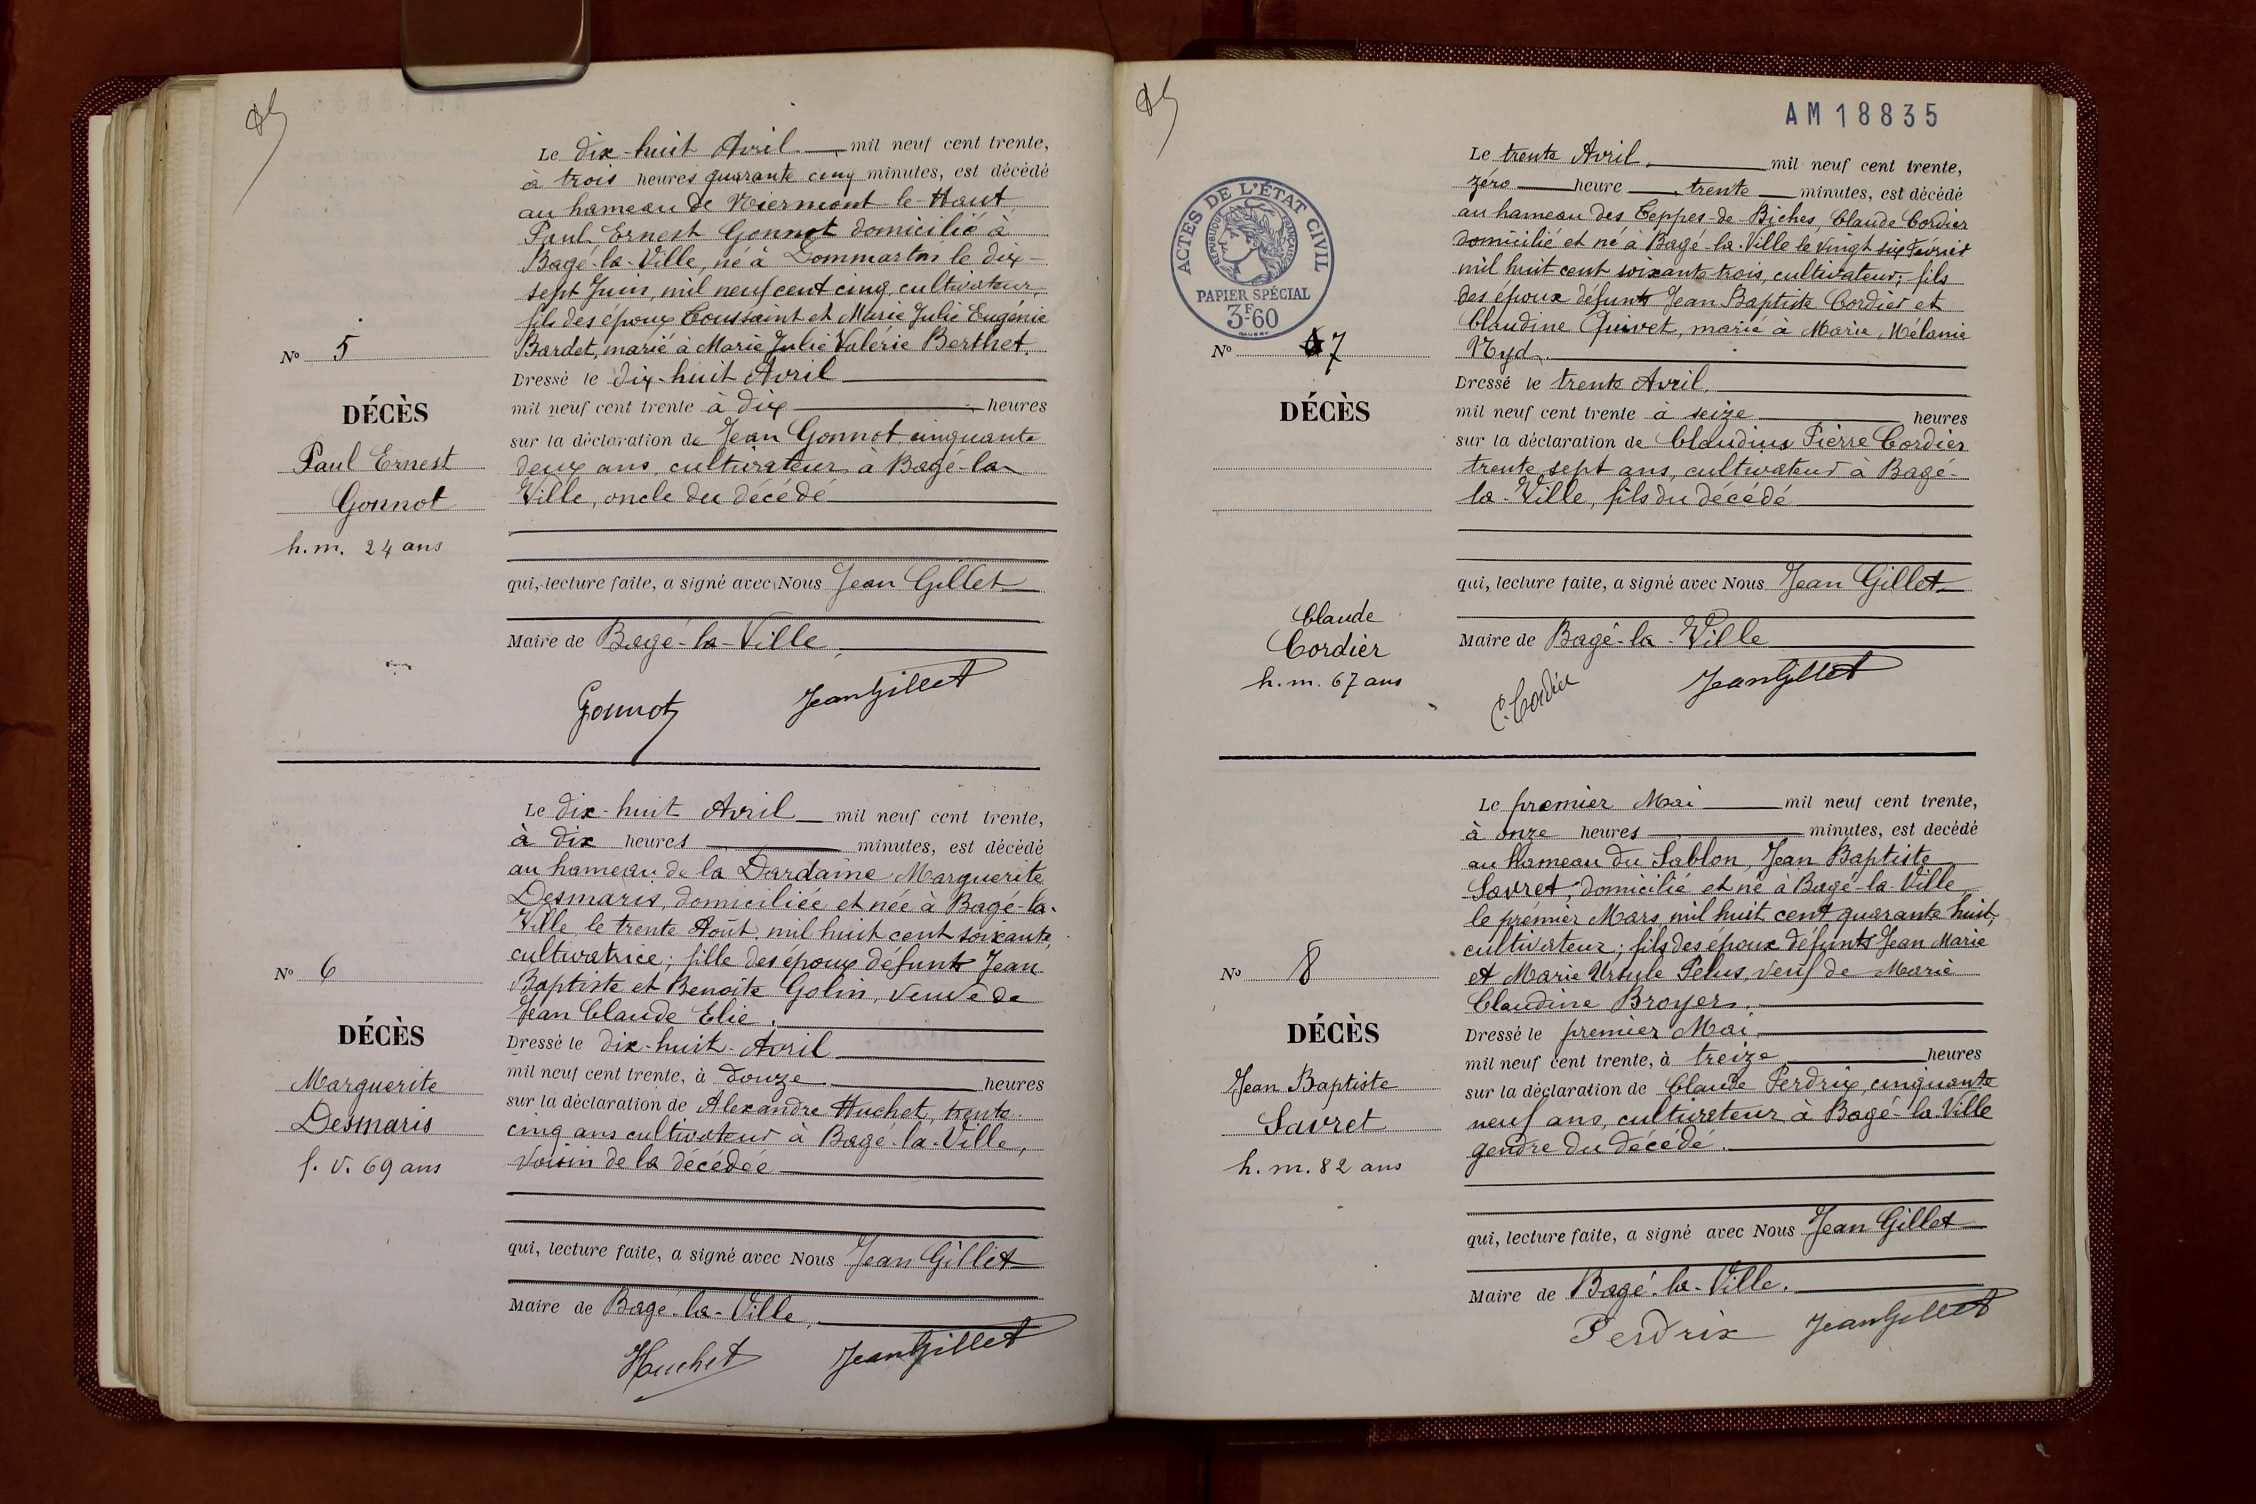 Le dix-huit Avril mil neuf cent trente,
à trois heures quarante cinq minutes, est décédé
au hameau de Niermont-le-Haut
Paul Ernest Gonnot domicilié à
Bagé-la-Ville, né à Dommartin le dix-
sept Juin, mil neuf cent cinq, cultivateur,
fils des époux Toussaint et Marie Julie Eugénie
Bardet, marié à Marie Julie Valérie Berthet.
Nº 5
Dressé le dix-huit Avril
mil neuf cent trente à dix heures
DÉCÈS
sur la déclaration de Jean Gonnot, cinquante
Paul Ernest
deux ans, cultivateur à Bagé-la-
Gonnot
Ville, oncle du décédé
h.m. 24 ans
qui, lecture faite, a signé avec Nous Jean Gillet
Maire de Bagé-la-Ville,
Gonnot JeanGillet
Le dix-huit Avril mil neuf cent trente,
à dix heures minutes, est décédé
au hameau de la Dardaine Marguerite
Desmaris, domiciliée et née à Bagé-la-
Ville, le trente Août, mil huit cent soixante,
cultivatrice; fille des époux défunts Jean
Nº 6
Baptiste et Benoîte Golin, veuve de
Jean Claude Elie.
DÉCÈS
Dressé le dix-huit-Avril
Marguerite
mil neuf cent trente, à douze heures
Desmaris
sur la déclaration de Alexandre Huchet, trente-
cinq ans cultivateur à Bagé-la-Ville,
f. v. 69 ans
voisin de la décédée
qui, lecture faite, a signé avec Nous Jean Gillet
Maire de Bagé-la-Ville,
Huchet JeanGillet
AM 18835
ACTES DE L'ÉTAT CIVIL
RÉPUBLIQUE FRANÇAISE
PAPIER SPÉCIAL
3F60
Le trente Avril mil neuf cent trente,
zéro heure trente minutes, est décédé
au hameau des Teppes-de-Biches, Claude Cordier
domicilié et né à Bagé-la-Ville le vingt six Février
mil huit cent soixante-trois, cultivateur; fils
des époux défunts Jean Baptiste Cordier et
Claudine Quivet, marié à Marie Mélanie
Nyd.
Nº 7
Dressé le trente Avril.
DÉCÈS
mil neuf cent trente à seize heures
sur la déclaration de Claudius Pierre Cordier
trente sept ans, cultivateur à Bagé-
la-Ville, fils du décédé
qui, lecture faite, a signé avec Nous Jean Gillet
Claude
Cordier
Maire de Bagé-la-Ville
h.m. 67 ans
C. Cordier JeanGillet
Le premier Mai mil neuf cent trente,
à onze heures minutes, est decédé
au hameau du Sablon, Jean Baptiste
Savret, domicilié et né à Bagé-la-Ville
le premier Mars mil huit cent quarante huit,
cultivateur; fils des époux défunts Jean Marie
Nº 8
et Marie Ursule Pelus, veuf de Marie
Claudine Broyer.
DÉCÈS
Dressé le premier Mai
mil neuf cent trente, à treize heures
Jean Baptiste
sur la déclaration de Claude Perdrix, cinquante
Savret
neuf ans, cultivateur à Bagé-la-Ville
gendre du décédé.
h.m. 82 ans
qui, lecture faite, a signé avec Nous Jean Gillet
Maire de Bagé-la-Ville.
Perdrix JeanGillet